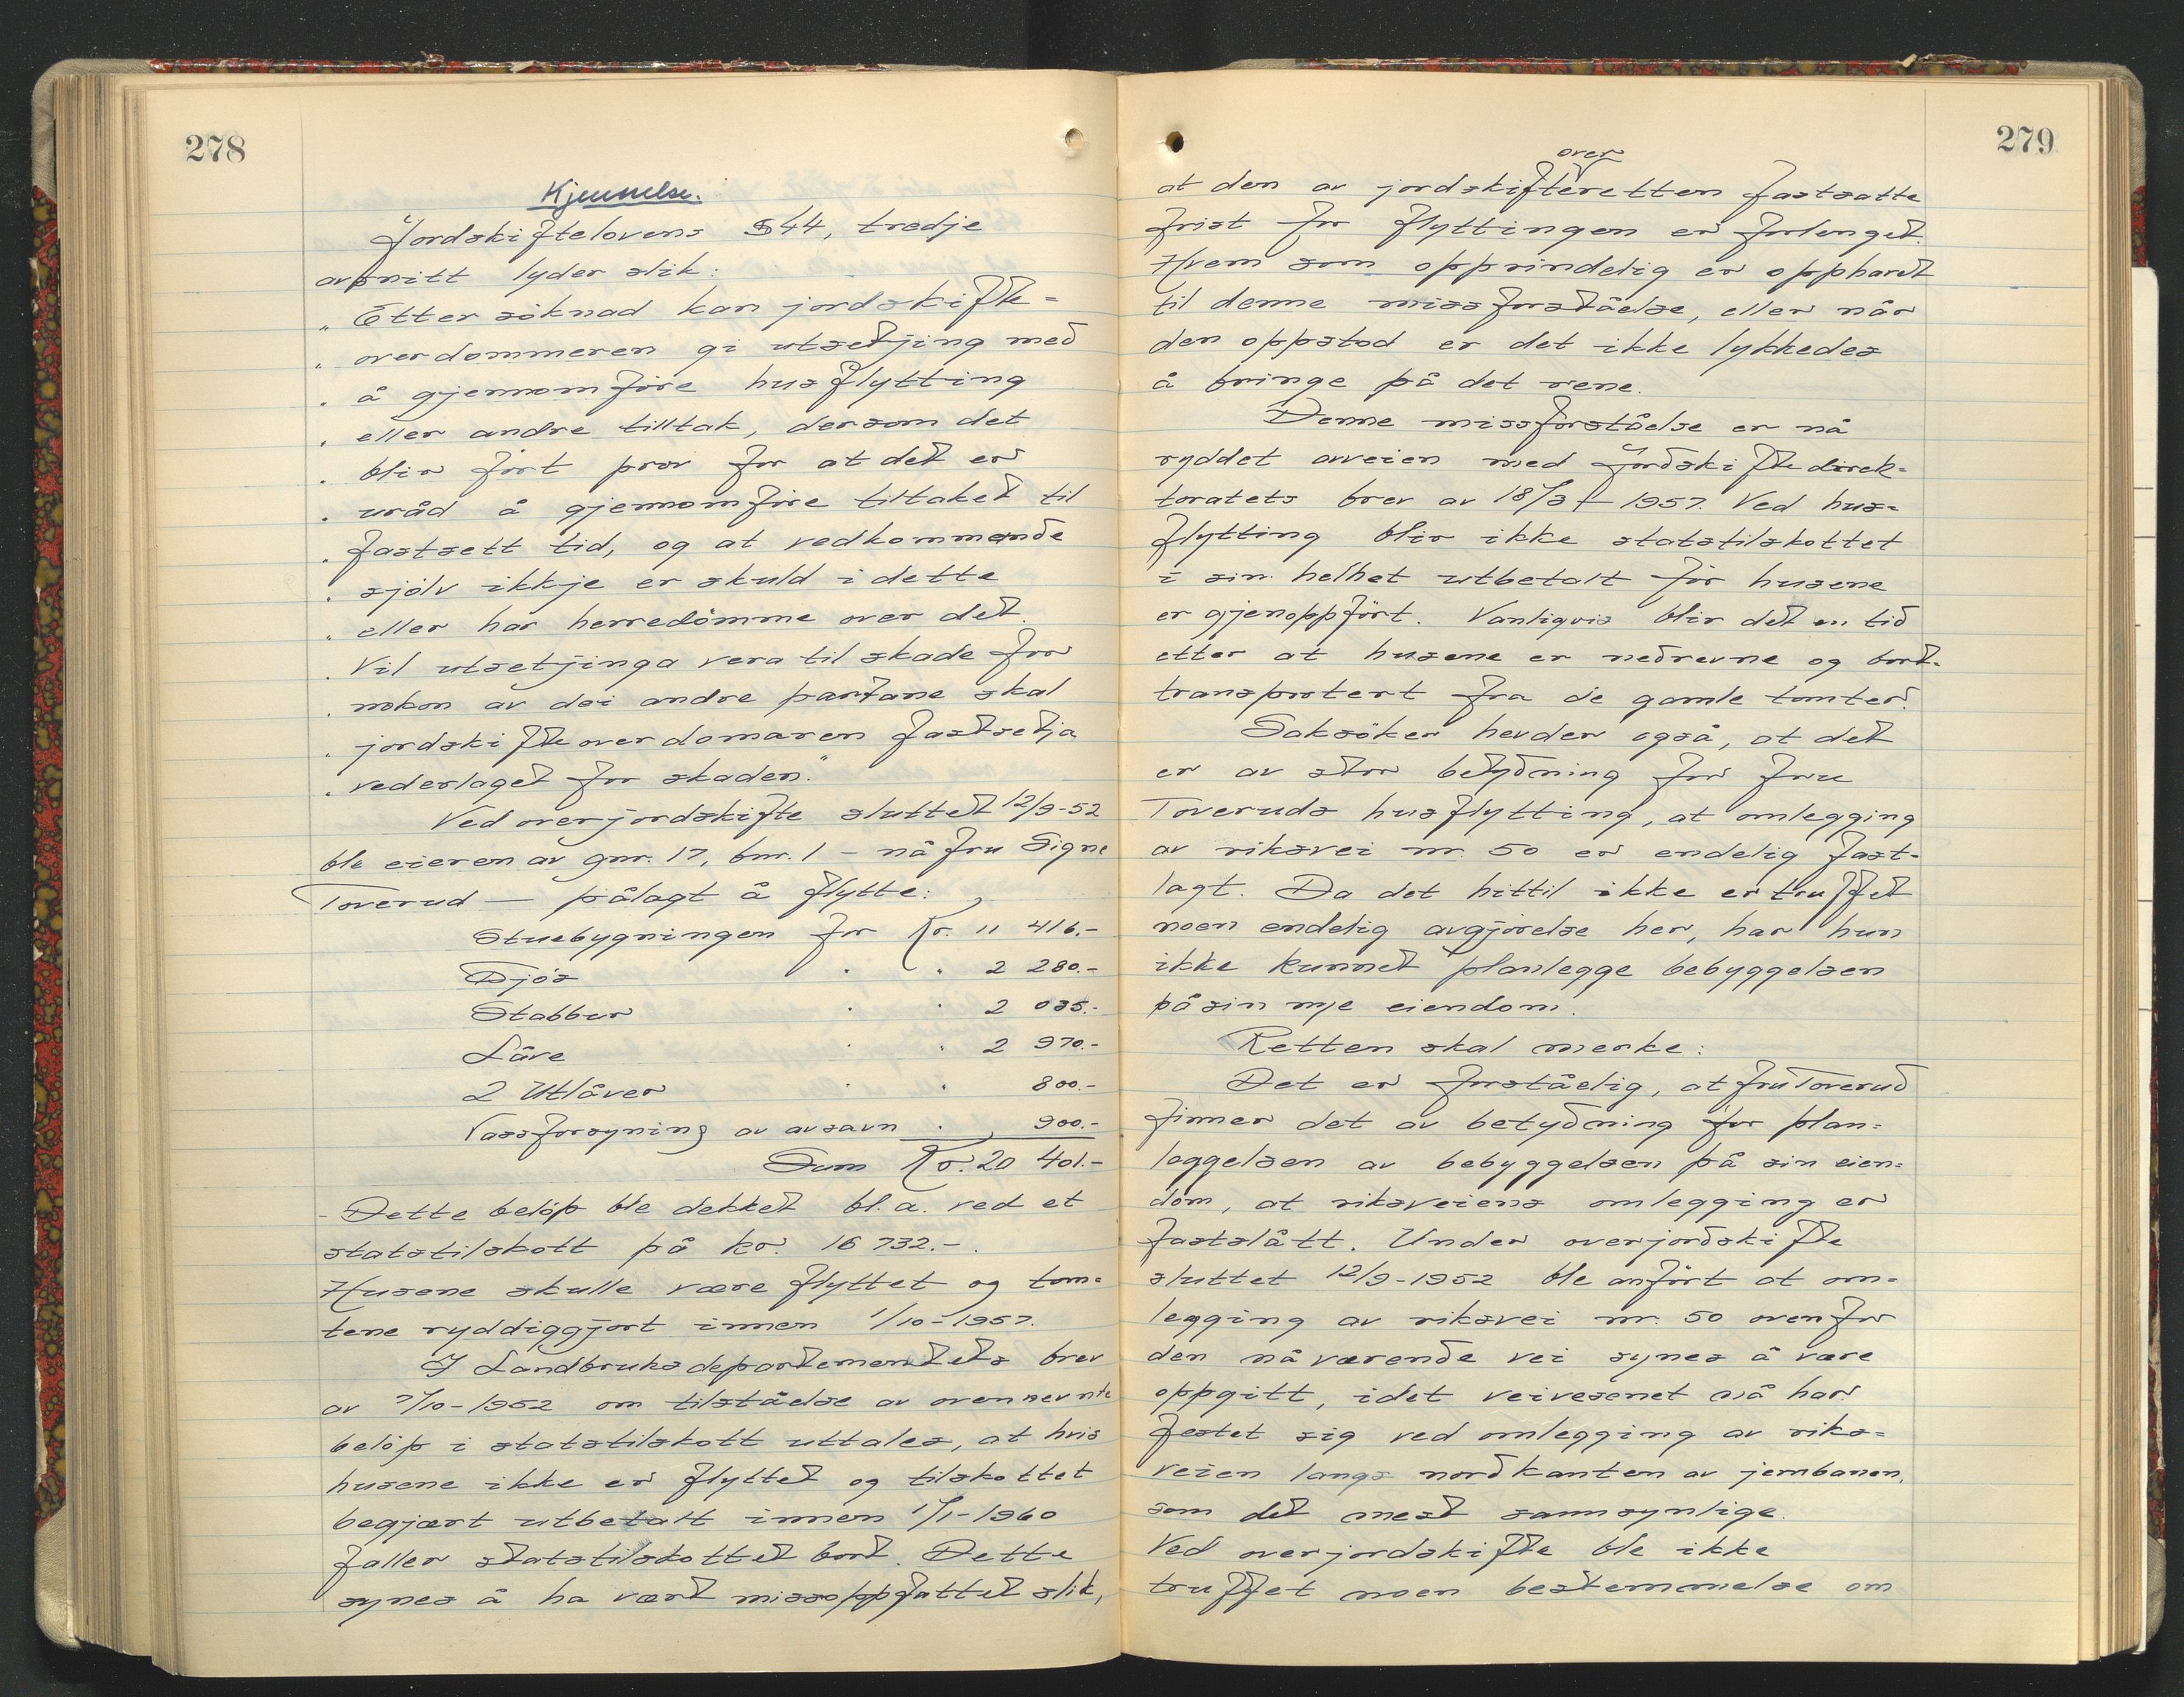 278
Kjennelse.
Jordskiftelovens §44, tredje
avsnitt lyder slik:
„ Etter söknad kan jordskifte=
„ overdommeren gi utsetjing med
„ å gjennomföre husflytting
„ eller andre tilltak, dersom det
„ blir fört prov for at det er
„ uråd å gjennomföre tiltaket til
„ fastsett tid, og at vedkommande
„ sjölv ikkje er skuld i dette
„ eller har herredömme over det.
„ Vil utsetjinga vera til skade for
„ nokon av dei andre partane skal
„ jordskifteoverdomaren fastsetja
„ vederlaget for skaden."
Ved overjordskifte sluttet 12/9-52
ble eieren av gnr. 17, bnr. 1 – nå fru Signe
Toverud — pålagt å flytte:
Stuebygningen for Kr. 11 416.-
Fjös " " 2 280.-
Stabbur " " 2 035.-
Låve " " 2 970.-
2 Utlåver " " 800.-
Vassforsyning av avsavn " 900.-
Sum Kr. 20 401.-
- Dette belöp ble dekket bl.a. ved et
statstilskott på kr. 16 732.-.
Husene skulle være flyttet og tom=
tene ryddiggjort innen 1/10-1957.
I Landbruksdepartementets brev
av 7/10-1952 om tilståelse av ovennevnte
belöp i statstilskott uttales, at hvis
husene ikke er flyttet og tilskottet
begjært utbetalt innen 1/1-1960
faller statstilskottet bort. Dette
synes å ha vært missoppfattet slik,
279
over
at den av jordskifteretten fastsatte
frist for flyttingen er forlenget.
Hvem som opprindelig er opphavet
til denne missforståelse, eller når
den oppstod er det ikke lykkedes
å bringe på det rene.
Denne missforståelse er nå
ryddet avveien med Jordskiftedirek=
toratets brev av 18/3 1957. Ved hus=
flytting blir ikke statstilskottet
i sin helhet utbetalt för husene
er gjenoppfört. Vanligvis blir det en tid
etter at husene er nedrevne og bort=
transportert fra de gamle tomter.
Saksöker hevder også, at det
er av stor betydning for fru
Toveruds husflytting, at omlegging
av riksvei nr. 50 er endelig fast-
lagt. Da det hittil ikke er truffet
noen endelig avgjörelse her, har hun
ikke kunnet planlegge bebyggelsen
på sin nye eiendom.
Retten skal merke:
Det er forståelig, at fru Toverud
finner det av betydning for plan=
leggelsen av bebyggelsen på sin eien=
dom, at riksveiens omlegging er
fastslått. Under overjordskifte
sluttet 12/9-1952 ble anfört at om=
legging av riksvei nr. 50 ovenfor
den nåværende vei synes å være
oppgitt, idet veivesenet nå har
festet sig ved omlegging av riks=
veien langs nordkanten av jernbanen,
som det mest sannsynlige.
Ved overjordskifte ble ikke
truffet noen bestemmelse om